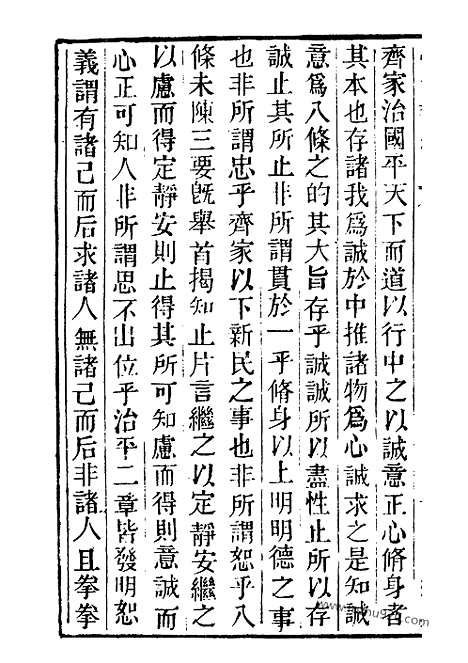 齊家治國平天下而道以行中之以誠意正心脩身者
其本也存諸我爲誠於中推諸物爲心誠求之是知誠
意爲八條之的其大旨存乎誠誠所以盡性止所以存
誠止其所止非所謂貫於一乎脩身以上明明德之事
也非所謂忠乎齊家以下新民之事也非所謂恕乎八
條未陳三要旣舉首揭知止片言繼之以定靜安繼之
以慮而得定靜安則止得其所可知慮而得則意誠而
心正可知人非所謂思不出位乎治平二章皆發明恕
義謂有諸己而后求諸人無諸己而后非諸人且拳拳